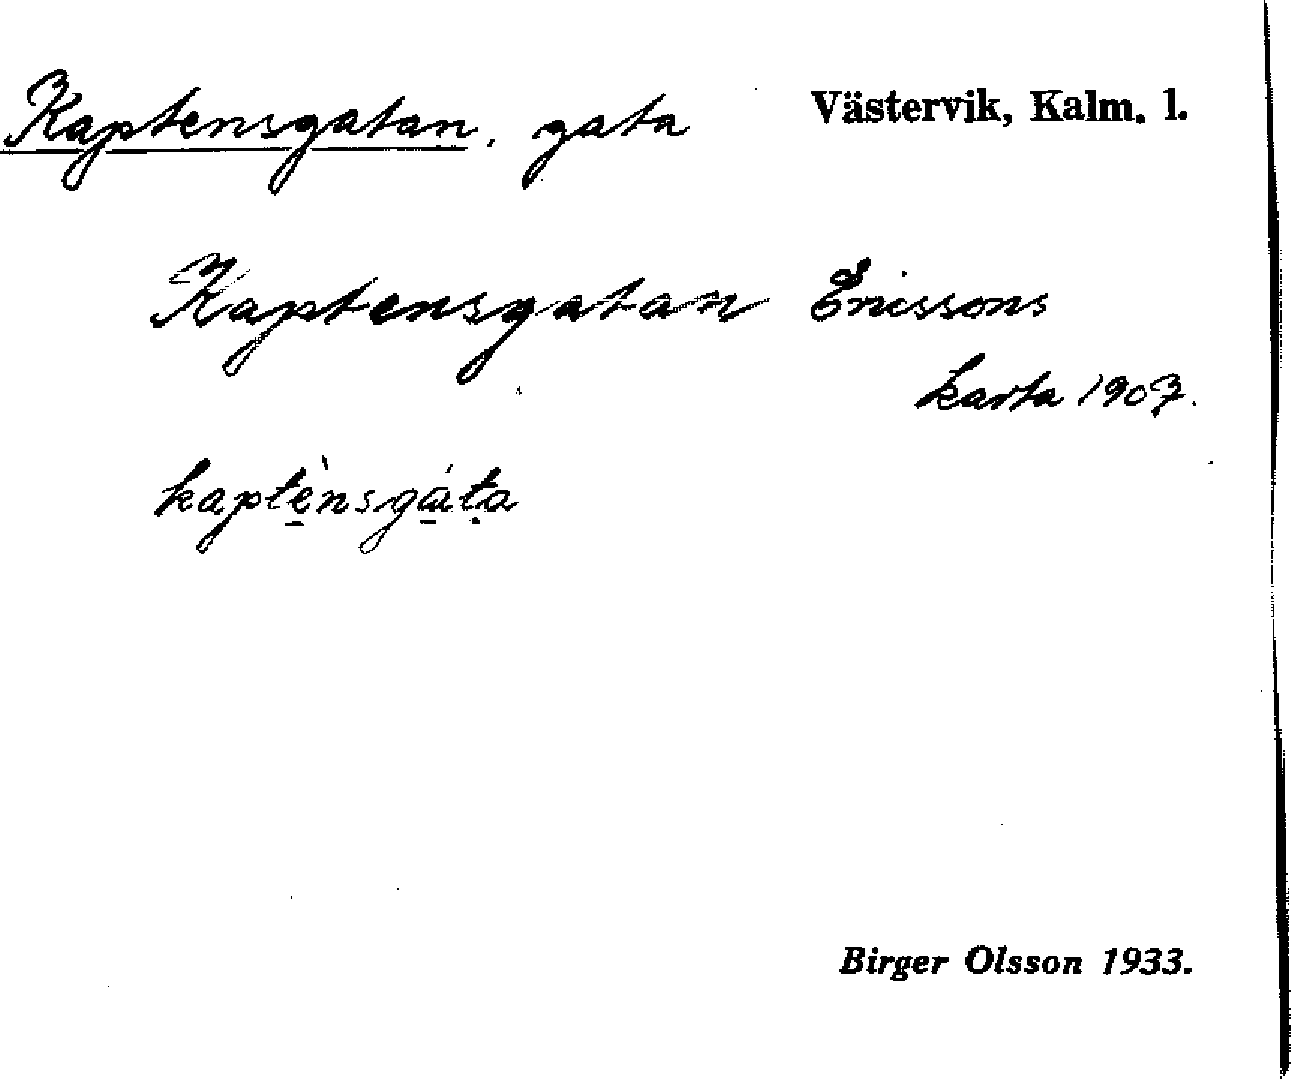 Kaptensgatan, gata Västervik, Kalm. l.
Kaptensgatan Ericssons
karta 1907.
kaptènsgáta
Birger Olsson 1933.